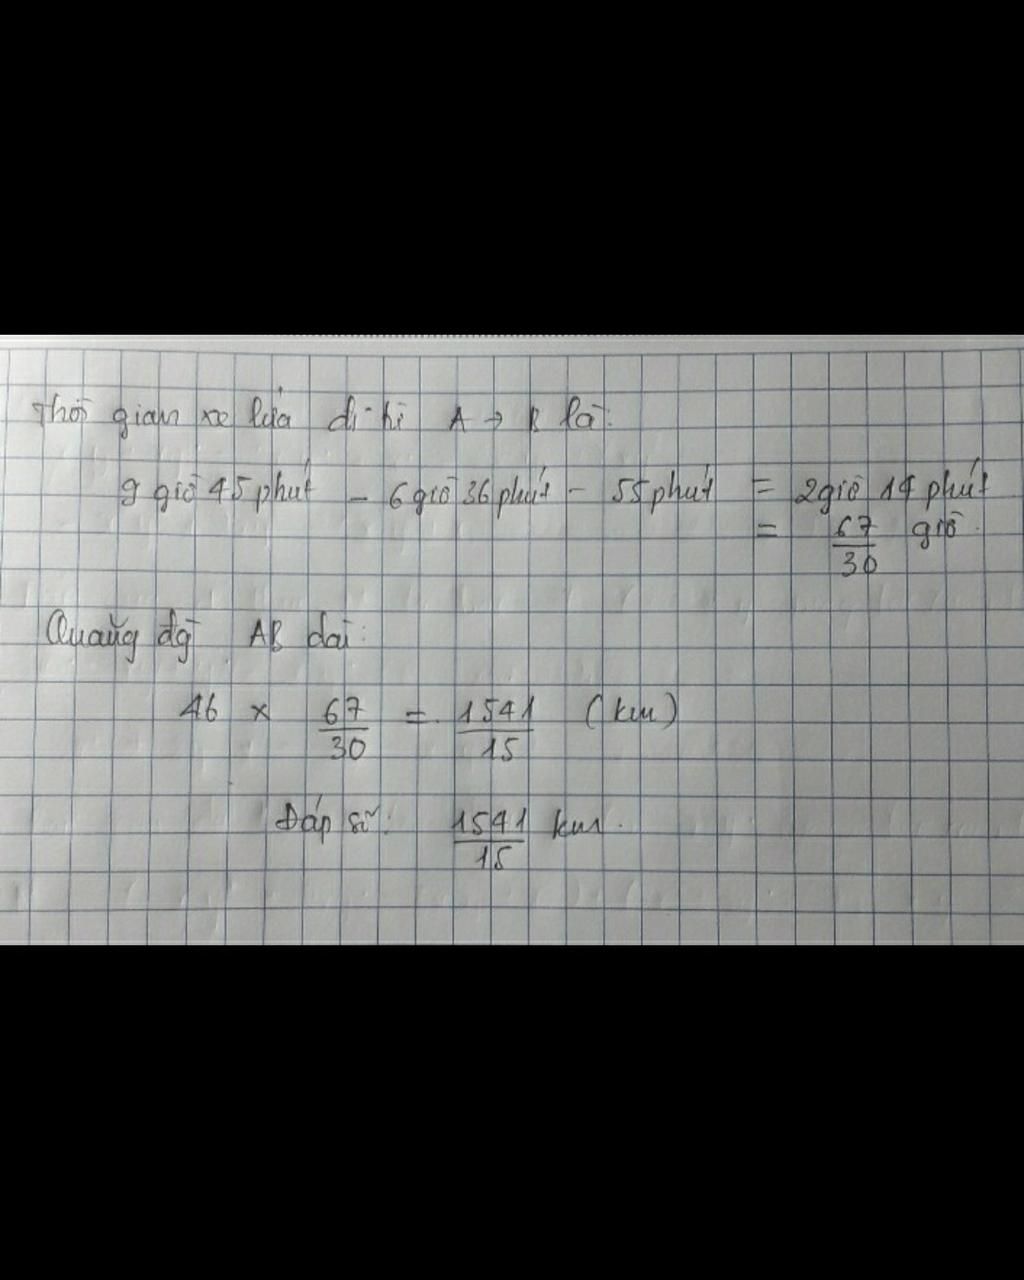 Thời gian xe lửa đi từ A → B là:
9 giờ 45 phút - 6 giờ 36 phút - 55 phút = 2 giờ 14 phút
= 67/30 giờ.
Quãng đg AB dài:
46 x 67/30 = 1541/15 (km)
Đáp số: 1541/15 km.